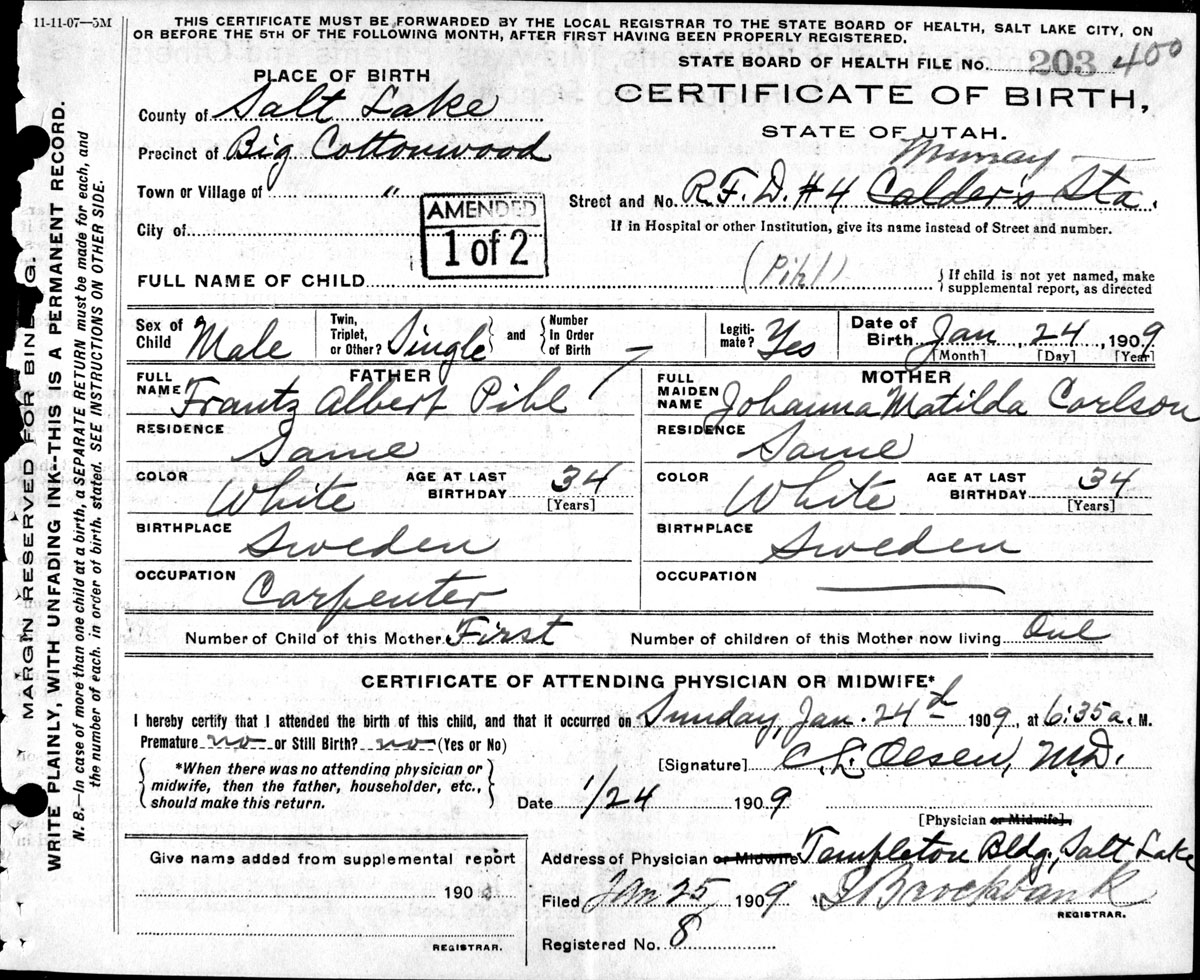 11-11-07—5M
THIS CERTIFICATE MUST BE FORWARDED BY THE LOCAL REGISTRAR TO THE STATE BOARD OF HEALTH, SALT LAKE CITY, ON
OR BEFORE THE 5TH OF THE FOLLOWING MONTH, AFTER FIRST HAVING BEEN PROPERLY REGISTERED.
STATE BOARD OF HEALTH FILE No. 203 400
CERTIFICATE OF BIRTH,
STATE OF UTAH.
PLACE OF BIRTH
County of Salt Lake
Precinct of Big Cottonwood
Town or Village of "
City of
AMENDED
1 of 2
Murray
Street and No. R.F.D. #4 Calder's Sta.
If in Hospital or other Institution, give its name instead of Street and number.
FULL NAME OF CHILD (Pihl)
{ If child is not yet named, make
supplemental report, as directed
Sex of Child Male
Twin, Triplet, or Other? Single and Number In Order of Birth —
Legiti- mate? Yes
Date of Birth Jan 24 1909
[Month] [Day] [Year]
FATHER
FULL NAME Frantz Albert Pihl
RESIDENCE Same
COLOR White AGE AT LAST BIRTHDAY 34
[Years]
BIRTHPLACE Sweden
OCCUPATION Carpenter
MOTHER
FULL MAIDEN NAME Johanna Matilda Carlson
RESIDENCE Same
COLOR White AGE AT LAST BIRTHDAY 34
[Years]
BIRTHPLACE Sweden
OCCUPATION —
Number of Child of this Mother First Number of children of this Mother now living One
CERTIFICATE OF ATTENDING PHYSICIAN OR MIDWIFE*
I hereby certify that I attended the birth of this child, and that it occurred on Sunday, Jan. 24d 1909, at 6:35 a. M.
Premature no or Still Birth? no (Yes or No)
*When there was no attending physician or
midwife, then the father, householder, etc.,
should make this return.
[Signature] C. L. Olsen, M.D.
Date 1/24 1909
[Physician or Midwife]
Address of Physician or Midwife Templeton Bldg, Salt Lake
Filed Jan 25 1909 Brockbank
REGISTRAR.
Registered No. 8
Give name added from supplemental report
190
REGISTRAR.
MARGIN RESERVED FOR BINDING.
WRITE PLAINLY, WITH UNFADING INK--THIS IS A PERMANENT RECORD.
N. B.—In case of more than one child at a birth, a SEPARATE RETURN must be made for each, and
the number of each, in order of birth, stated. SEE INSTRUCTIONS ON OTHER SIDE.